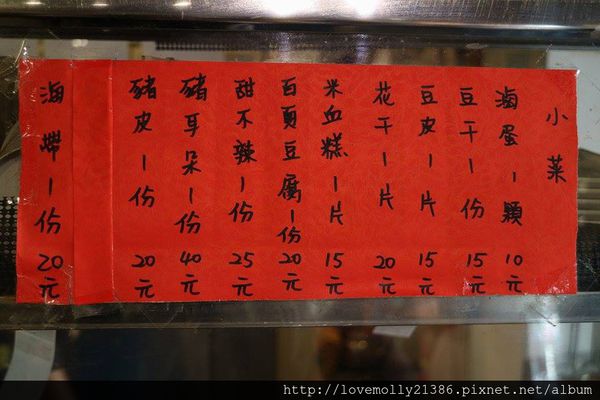 小菜
滷蛋一顆 10元
豆干一份 15元
豆皮一片 15元
花干一片 20元
米血糕一片 15元
百頁豆腐一份 20元
甜不辣一份 25元
豬耳朵一份 40元
豬皮一份 20元
海帶一份 20元
http://lovemolly21386.pixnet.net/album